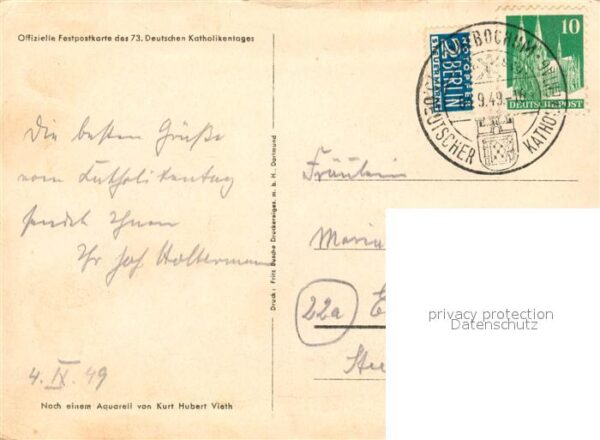 Offizielle Festpostkarte des 73. Deutschen Katholikentages
Die besten Grüße
vom Katholikentag
sendet Ihnen
Ihr Jos Woltermann
4. IX. 49
Nach einem Aquarell von Kurt Hubert Vieth
Druck: Fritz Busche Druckereiges. m. b. H. Dortmund
NOTOPFER
2 BERLIN
STEUERMARKE
BOCHUM
9.49.
DEUTSCHER KATHO
10
DEUTSCHE POST
Fräulein
Maria
22a
privacy protection
Datenschutz